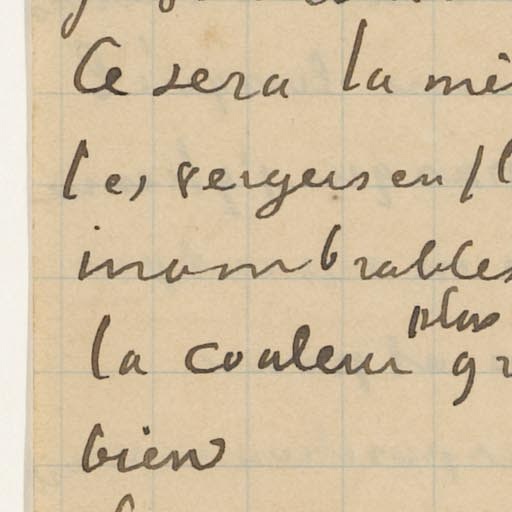 Ce sera la mê
les vergers en fl
inombrables
la couleur plus gr
bien